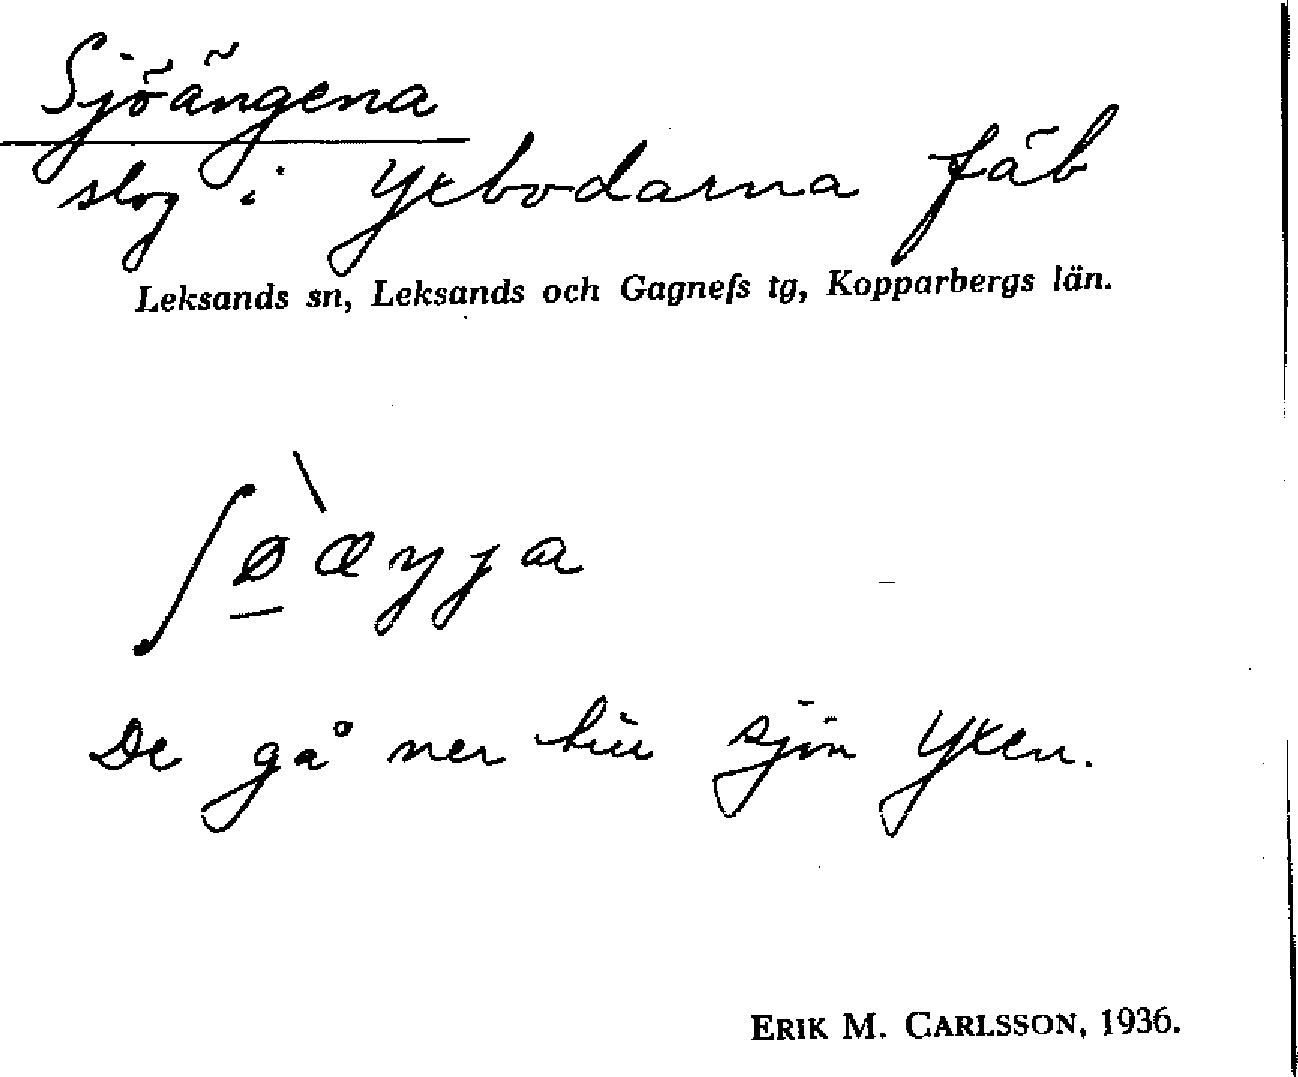 Sjöängena
slog i Yxbodarna fäb
Leksands sn, Leksands och Gagnefs tg, Kopparbergs län.
ʃø̲̀æŋja
De gå ner till sjön Yxen.
ERIK M. CARLSSON, 1936.